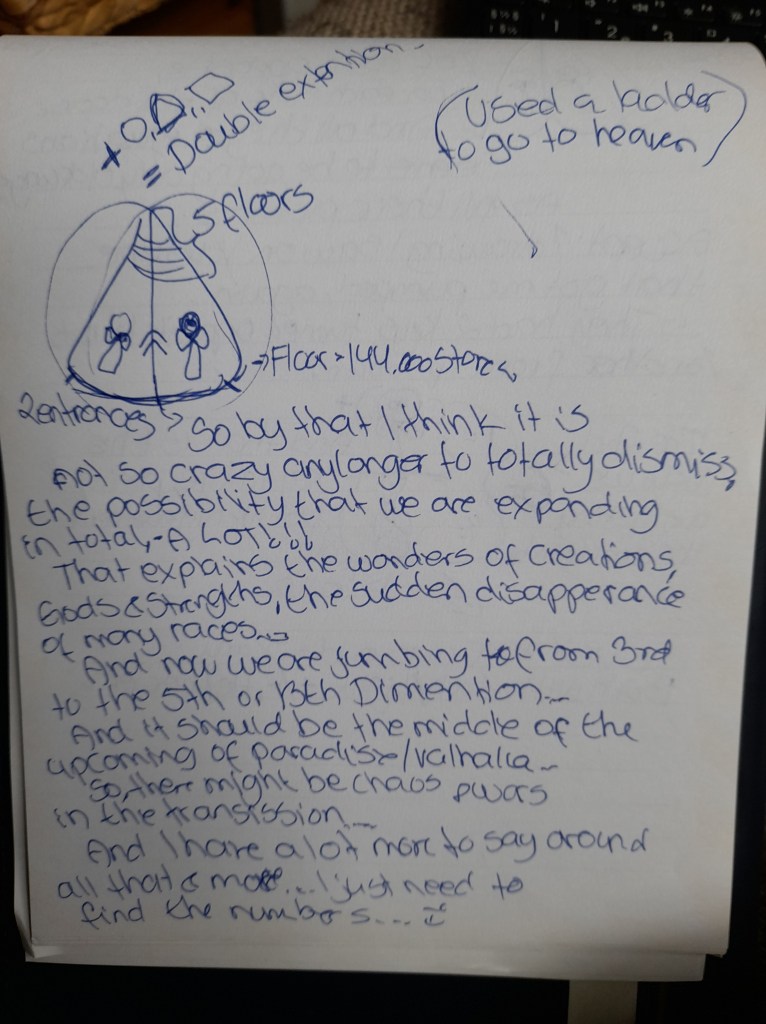 + O, △, □
= Double extention..
(Used a ladder
to go to heaven)
5 floors
→ Floor > 144.000 Stores
2 entrances > So by that I think it is
not so crazy anylonger to totally dismiss,
the possiblity that we are expanding
in total,- A LOT!!!
That explains the wonders of creations,
Gods & Strengths, the sudden disapperance
of many races...
And now we are jumbing to from 3rd
to the 5th or 13th Dimention...
And it should be the middle of the
upcoming of paradise/valhalla...
So, there might be chaos
in the transission...
And I have a lot more to say around
all that & more... I just need to
find the numbers....